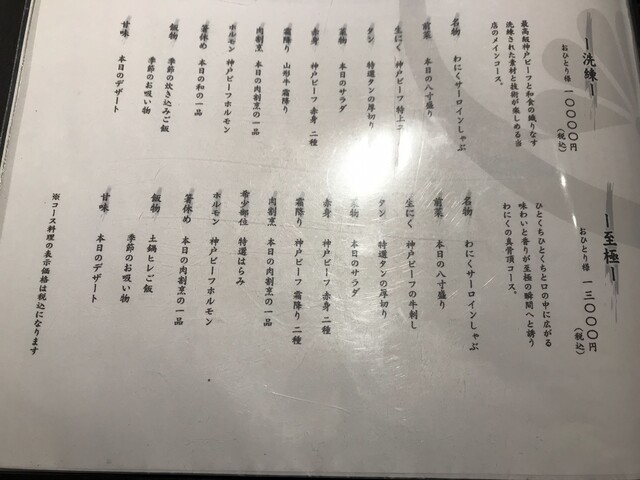 ―洗練―
おひとり様 一〇〇〇〇円
(税込)
最高級神戸ビーフと和食の織りなす
洗練された素材と技術が楽しめる当
店のメインコース。
名物 わにくサーロインしゃぶ
前菜 本日の八寸盛り
生にく 神戸ビーフ 特上
タン 特選タンの厚切り
菜物 本日のサラダ
赤身 神戸ビーフ 赤身 二種
霜降り 山形牛 霜降り
肉割烹 本日の肉割烹の一品
ホルモン 神戸ビーフホルモン
箸休め 本日の和の一品
飯物 季節の炊き込みご飯
季節のお吸い物
甘味 本日のデザート
―至極―
おひとり様 一三〇〇〇円
(税込)
ひとくちひとくちと口の中に広がる
味わいと香りが至極の瞬間へと誘う
わにくの真骨頂コース。
名物 わにくサーロインしゃぶ
前菜 本日の八寸盛り
生にく 神戸ビーフの牛刺し
タン 特選タンの厚切り
菜物 本日のサラダ
赤身 神戸ビーフ 赤身 二種
霜降り 神戸ビーフ 霜降り 二種
肉割烹 本日の肉割烹の一品
希少部位 特選はらみ
ホルモン 神戸ビーフホルモン
箸休め 本日の肉割烹の一品
飯物 土鍋ヒレご飯
季節のお吸い物
甘味 本日のデザート
※コース料理の表示価格は税込になります